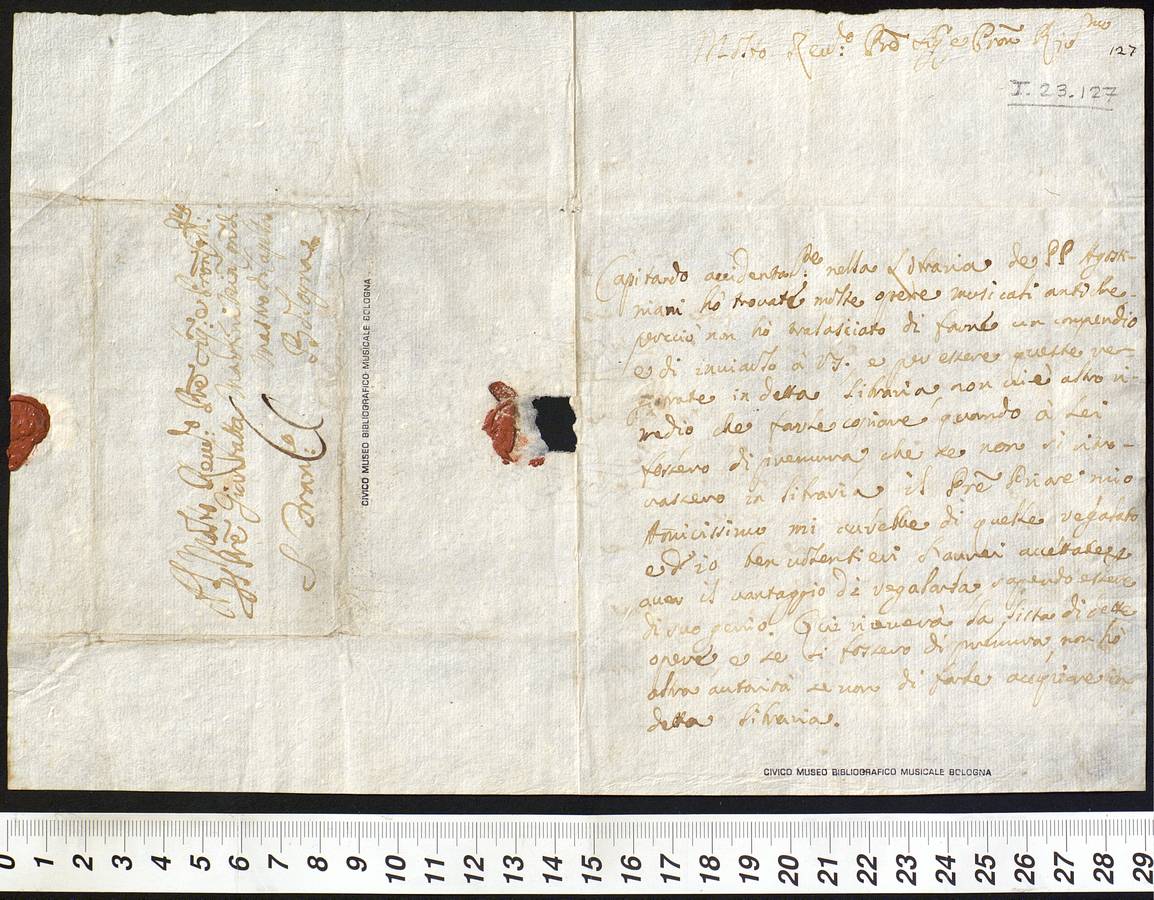 Molto Rev:do Pre Sig.e e Pron
127
I. 23.127
Capitando accidental:te nella Libraria de PP Agosti-
niani hò trovate molte opere musicali antiche
perciò non hò tralasciato di farne un compendio
e di inviarlo à VS. e per essere queste ser-
in detta libraria non vi è altro ri-
medio che farle copiare quando à Lei
fossero di premura che se non si ritro-
vassero in libraria il Pre Priore mio
Amicissimo mi avrebbe di queste regalato
ed io ben volentieri l'haurei accettate
auer il vantaggio di regalarla sapendo essere
di suo genio. Qui riceverà la lista di dette
opere, e se li fossero di premura, non hò
altra autorità se non di farle in
detta libraria.
CIVICO MUSEO BIBLIOGRAFICO MUSICALE BOLOGNA
Al Molto Reu:do Pre Sig.e e Pron
Il Pre Giambatta Martini Min. Con:
Mastro di Capella
S. Fran:co Bologna
CIVICO MUSEO BIBLIOGRAFICO MUSICALE BOLOGNA
0 1 2 3 4 5 6 7 8 9 10 11 12 13 14 15 16 17 18 19 20 21 22 23 24 25 26 27 28 29